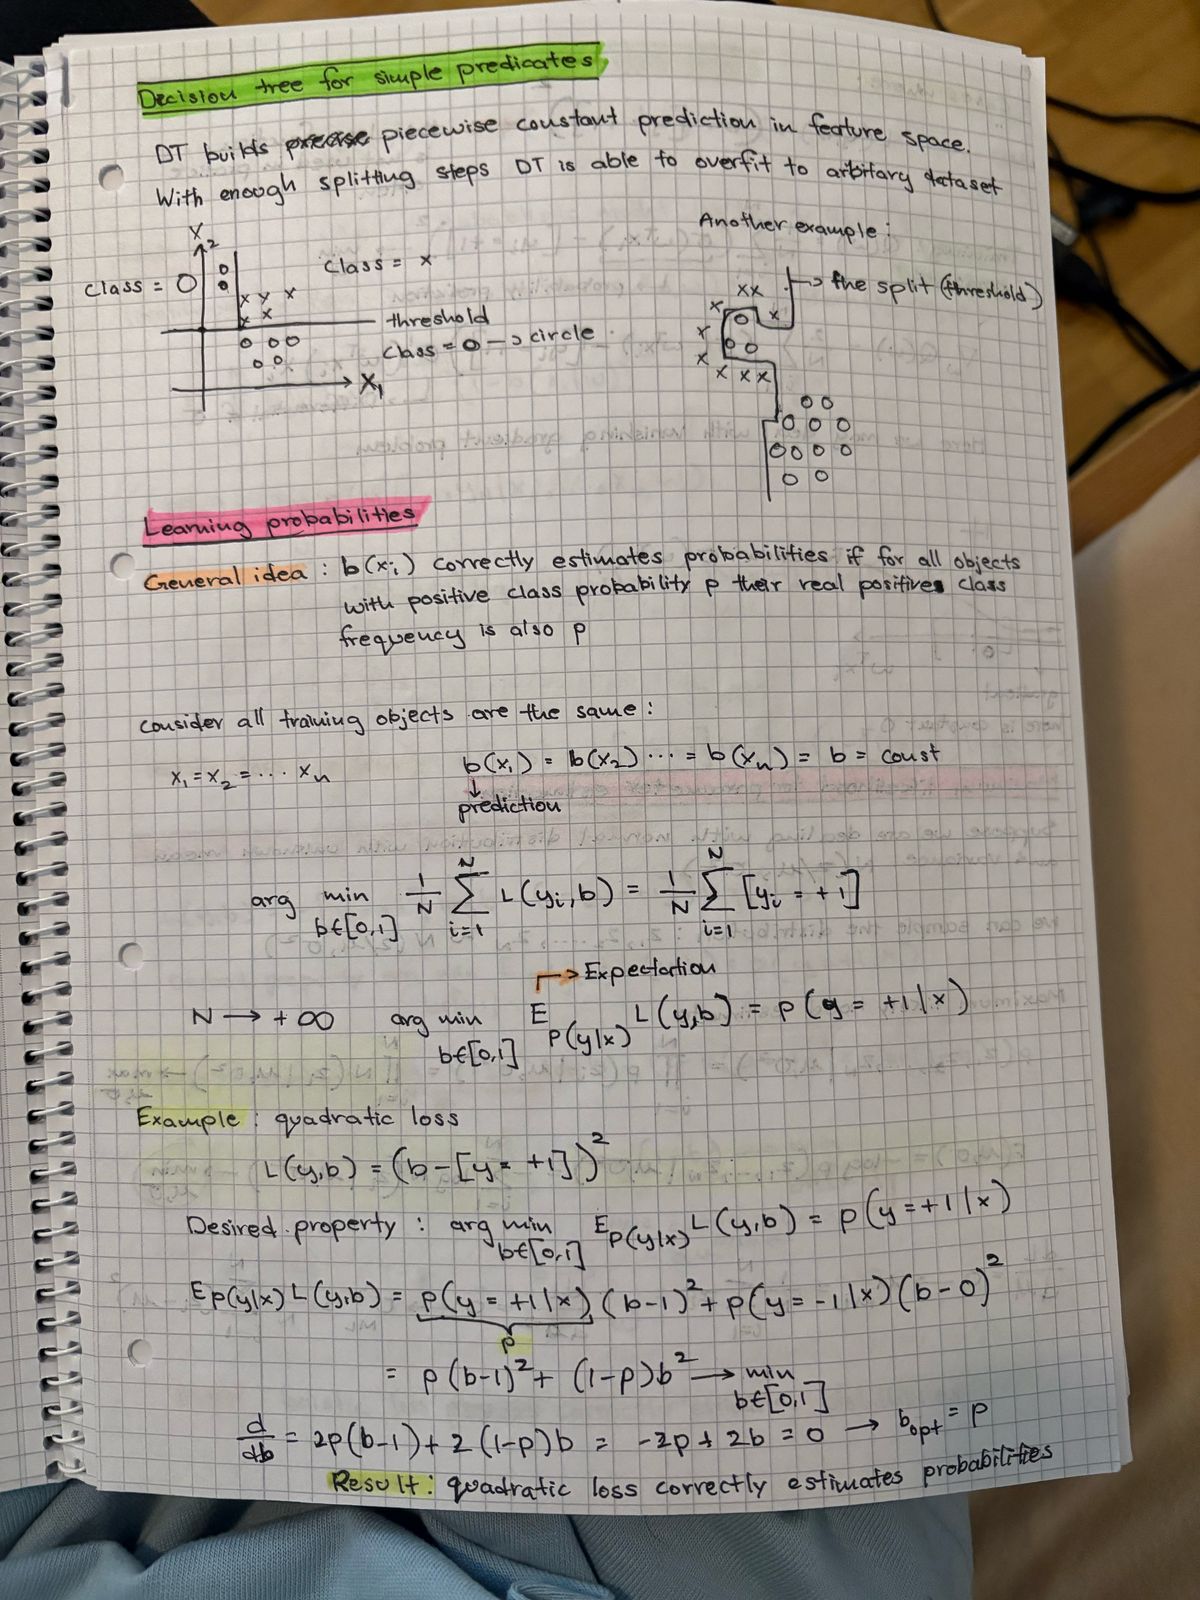 Decision tree for simple predicates
DT builds piecewise constant prediction in feature space.
With enough splitting steps DT is able to overfit to arbitary dataset
Another example:
X2
class = O
class = x
threshold
class = O → circle
X1
→ the split (threshold)
Learning probabilities
General idea : b(xi) correctly estimates probabilities if for all objects
with positive class probability p their real positives class
frequency is also p
consider all training objects are the same :
x1 = x2 = ... xn
b(x1) = b(x2) ... = b(xn) = b = const
↓
prediction
arg min b∈[0,1] 1/N ∑ i=1 N L(yi, b) = 1/N ∑ i=1 N [yi = +1]
→ Expectation
N → +∞ arg min b∈[0,1] E p(y|x) L(y,b) = p(y = +1|x)
Example : quadratic loss
L(y,b) = (b - [y = +1])²
Desired property : arg min b∈[0,1] E p(y|x) L(y,b) = p(y = +1|x)
E p(y|x) L(y,b) = p(y = +1|x) (b-1)² + p(y = -1|x) (b-0)²
p
= p(b-1)² + (1-p)b² → min b∈[0,1]
d/db = 2p(b-1) + 2(1-p)b = -2p + 2b = 0 → bopt = p
Result: quadratic loss correctly estimates probabilities